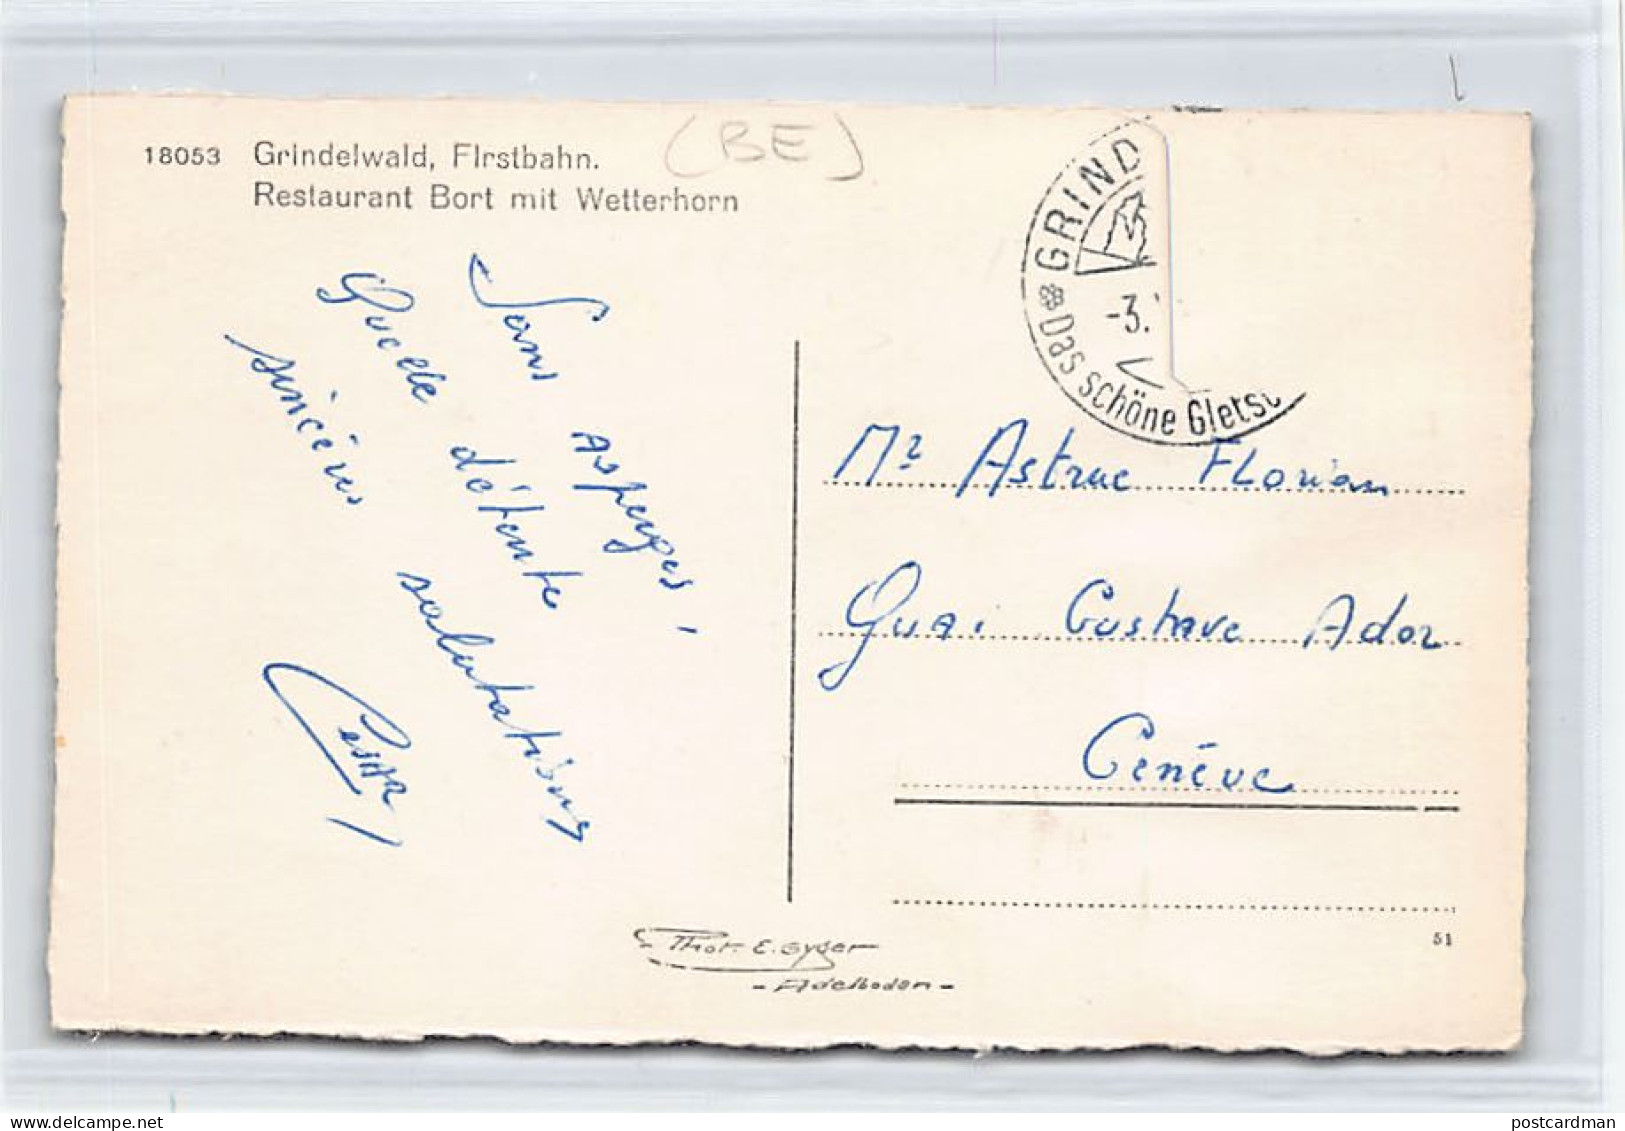 (BE)
18053 Grindelwald, Firstbahn.
Restaurant Bort mit Wetterhorn
GRIND
-3.
Das schöne Gletsc
Sans asperges,
Quelle détente
sincères salutations
César
Mr Astruc Florian
Quai Gustave Ador
Genève
51
Phot. E. Gyger
- Adelboden -
postcardman